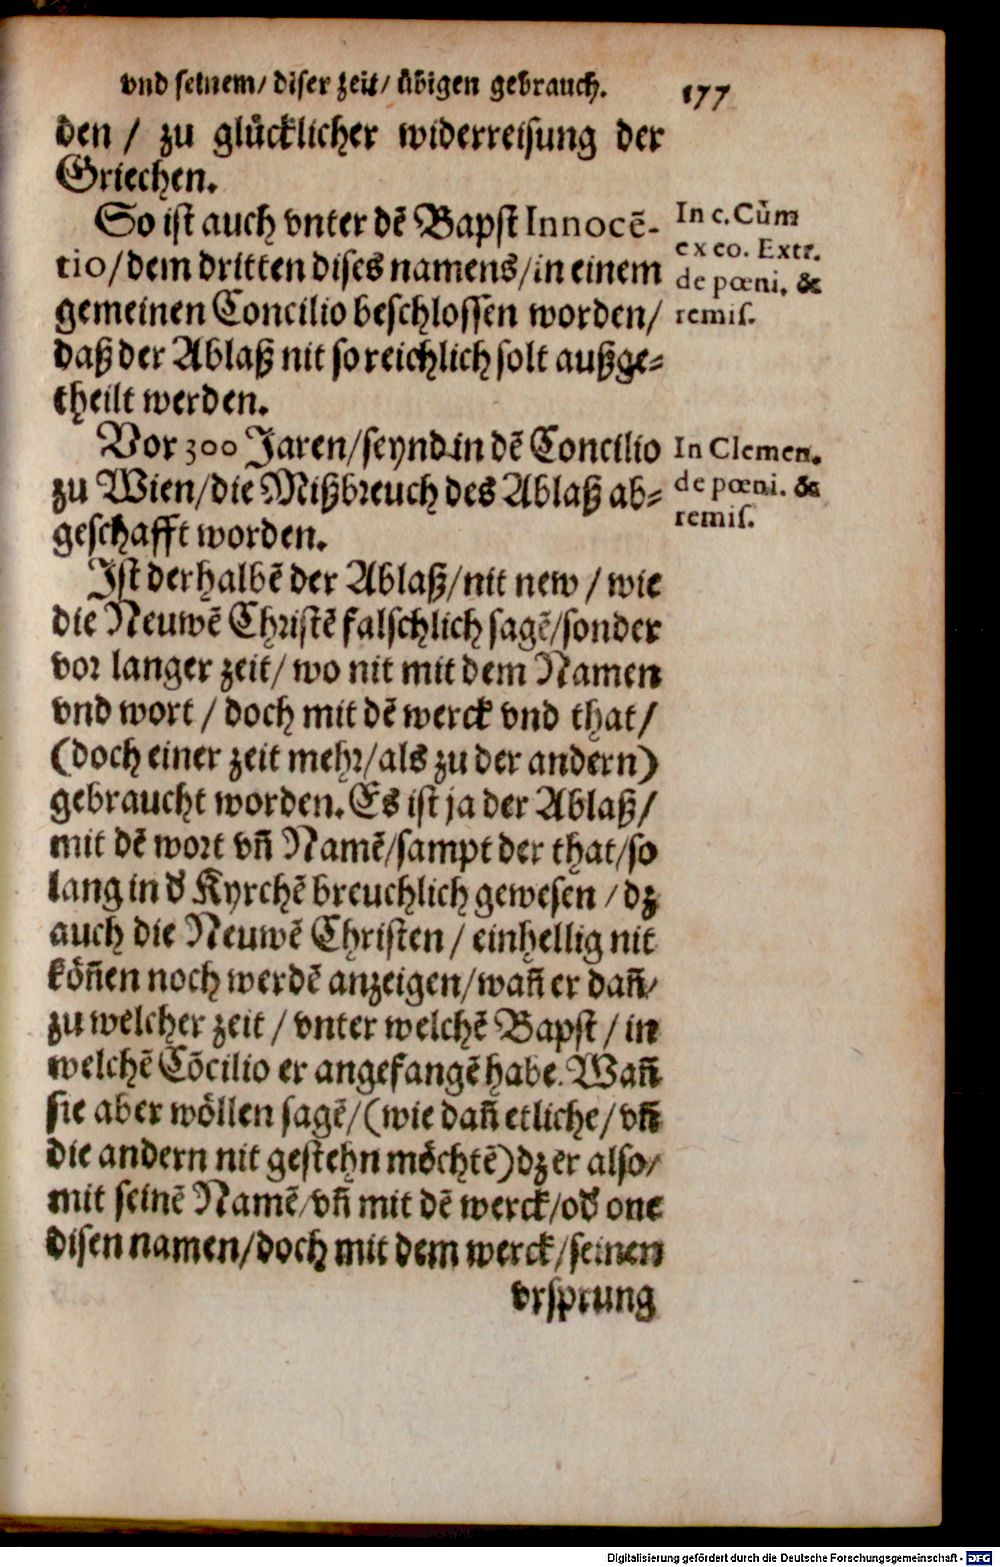 vnd seinem/ diser zeit/ übigen gebrauch. 177
den / zu glücklicher widerreisung der
Griechen.
So ist auch vnter dē Bapst Innocē-
tio/dem dritten dises namens/in einem
gemeinen Concilio beschlossen worden/
daß der Ablaß nit so reichlich solt außge⸗
theilt werden.
In c. Cũm
ex eo. Extr.
de pœni. &
remiſ.
Vor 300 Jaren/seynd in dē Concilio
zu Wien/die Mißbreuch des Ablaß ab⸗
geschafft worden.
In Clemen.
de pœni. &
remiſ.
Ist derhalbē der Ablaß/nit new / wie
die Neuwē Christē falschlich sagē/sonder
vor langer zeit/ wo nit mit dem Namen
vnd wort / doch mit dē werck vnd that/
(doch einer zeit mehr/als zu der andern)
gebraucht worden. Es ist ja der Ablaß/
mit dē wort vñ Namē/sampt der that/so
lang in d̕ Kyrchē breuchlich gewesen / dz
auch die Neuwē Christen / einhellig nit
köñen noch werdē anzeigen/wañ er dañ/
zu welcher zeit / vnter welchē Bapst / in
welchē Cōcilio er angefangē habe. Wañ
sie aber wöllen sagē/(wie dañ etliche/ vñ
die andern nit gestehn möchtē)dz er also/
mit seinē Namē/vñ mit dē werck/od̕ one
disen namen/doch mit dem werck/seinen
vrsprung
Digitalisierung gefördert durch die Deutsche Forschungsgemeinschaft - DFG